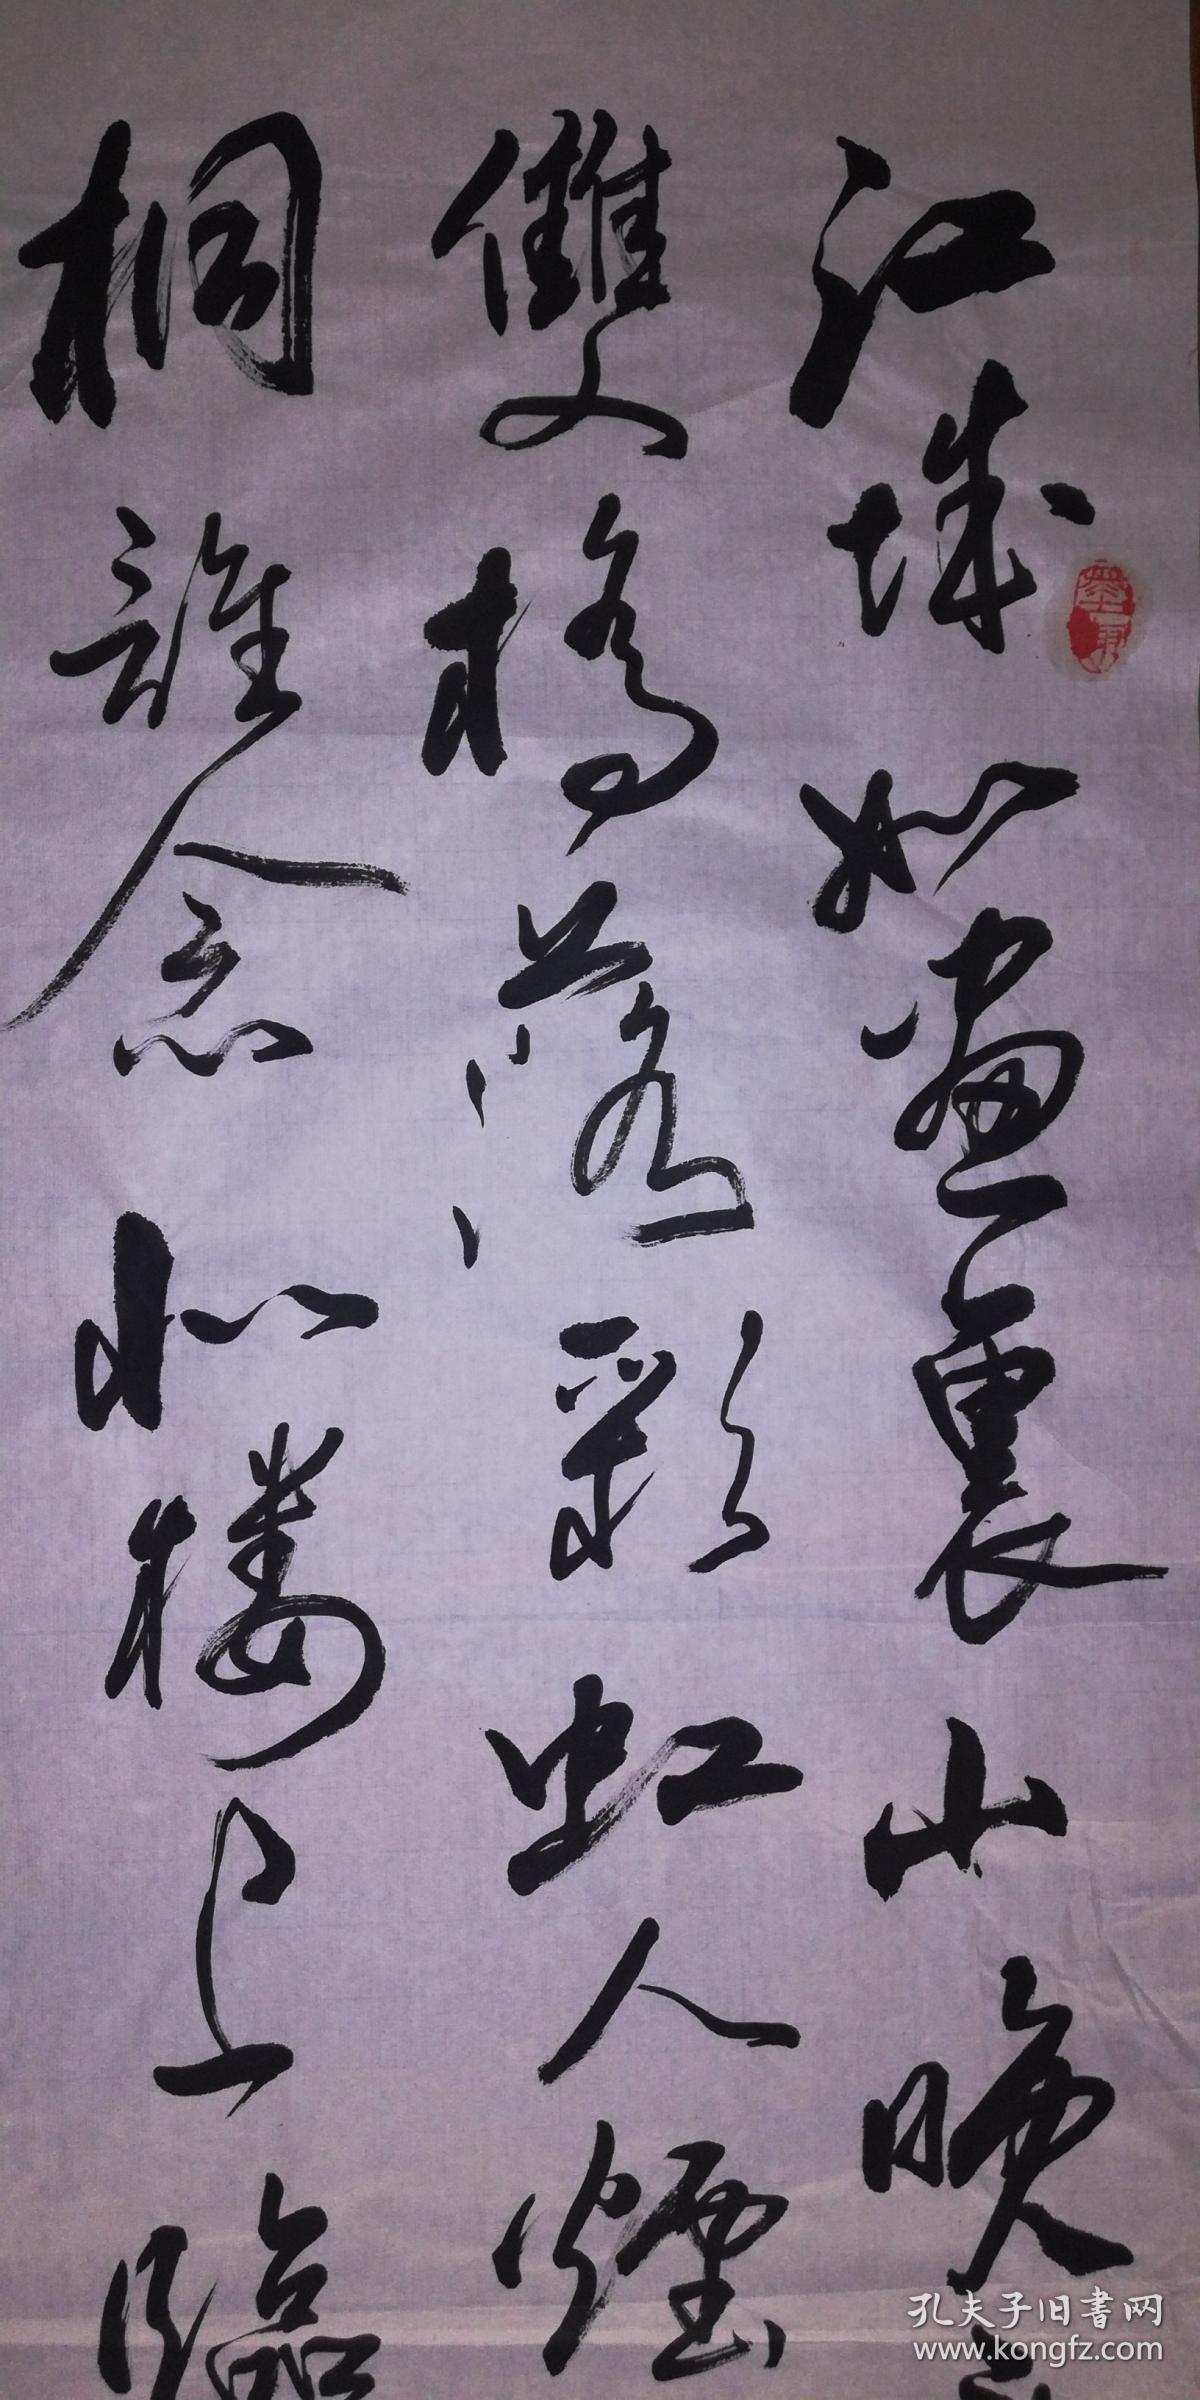 江城如畫裏山晚
雙橋落彩虹人煙
桐誰念北楼上臨
孔夫子旧书网
www.kongfz.com